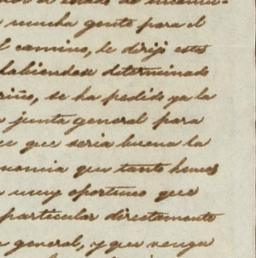 mucha gente para el
el camino, le dirijo estos
habiendose determinado
se ha pedido ya la
junta general para
que seria buena la
que tanto hemos
muy oportuno que
particular directamente
general, y que venga